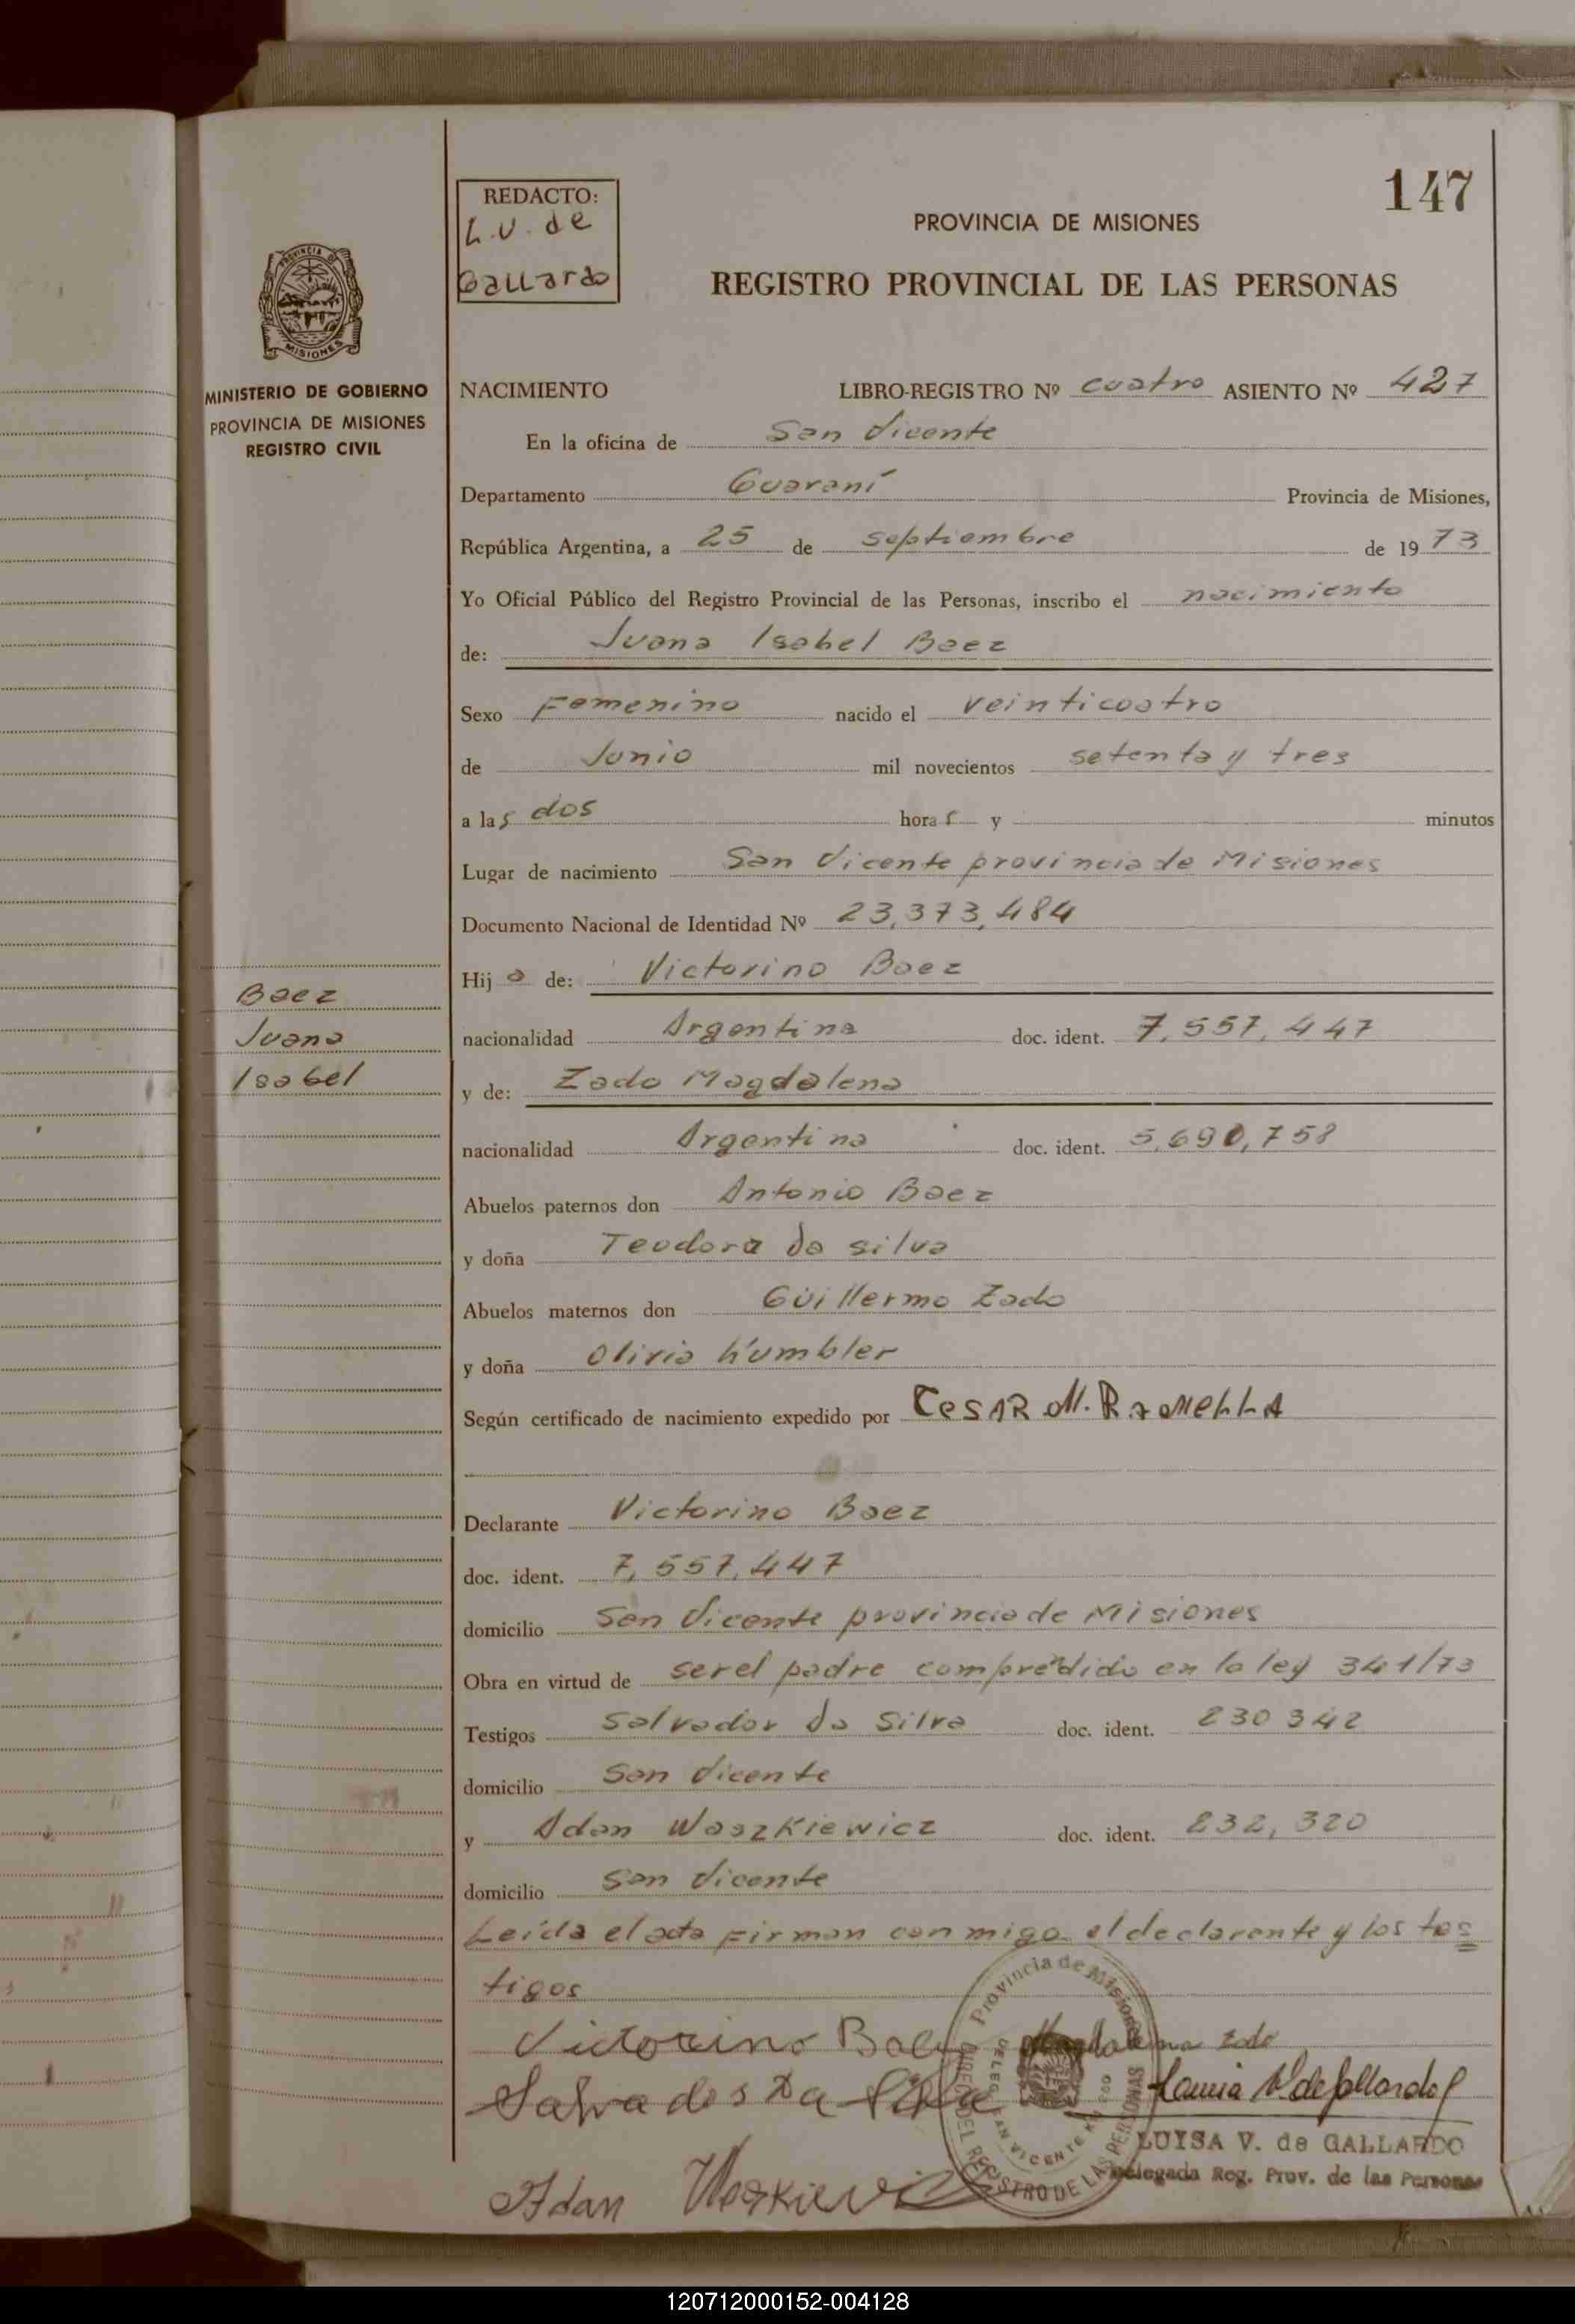 147
REDACTO:
L.V. de
Gallardo
PROVINCIA DE MISIONES
REGISTRO PROVINCIAL DE LAS PERSONAS
PROVINCIA DE
MISIONES
MINISTERIO DE GOBIERNO
PROVINCIA DE MISIONES
REGISTRO CIVIL
NACIMIENTO LIBRO-REGISTRO Nº cuatro ASIENTO Nº 427
En la oficina de San Vicente
Departamento Guaraní Provincia de Misiones,
República Argentina, a 25 de septiembre de 1973
Yo Oficial Público del Registro Provincial de las Personas, inscribo el nacimiento
de: Juana Isabel Baez
Sexo Femenino nacido el veinticuatro
de Junio mil novecientos setenta y tres
a las dos horas y minutos
Lugar de nacimiento San Vicente provincia de Misiones
Documento Nacional de Identidad Nº 23,373,484
Hija de: Victorino Baez
nacionalidad Argentina doc. ident. 7,557,447
y de: Zado Magdalena
nacionalidad Argentina doc. ident. 5,690,758
Abuelos paternos don Antonio Baez
y doña Teodora da silva
Abuelos maternos don Guillermo Zado
y doña Olivia Kumbler
Según certificado de nacimiento expedido por Cesar M.
Declarante Victorino Baez
doc. ident. 7,557,447
domicilio San Vicente provincia de Misiones
Obra en virtud de ser el padre compredido en la ley 341/73
Testigos Salvador da Silva doc. ident. 230 342
domicilio San Vicente
y Adan Waszkiewicz doc. ident. 232,320
domicilio San Vicente
Leída el acta Firman conmigo el declarente y los tes
tigos
Baez
Juana
Isabel
Victorino Baez Magdalena Zado
Salvador Da Silva
Adan
Provincia de Misiones
DIREC. DEL REGISTRO DE LAS PERSONAS
LUISA V. de GALLARDO
Delegada Reg. Prov. de las Personas
120712000152-004128